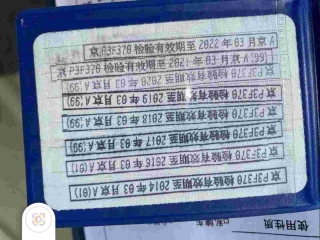 京P3F370 检验有效期至 2022 年 03 月京A
京P3F370 检验有效期至 2021 年 03 月京A(99)
京P3F370 检验有效期至 2020 年 03 月京A(99)
京P3F370 检验有效期至 2019 年 03 月京A(99)
京P3F370 检验有效期至 2018 年 03 月京A(99)
京P3F370 检验有效期至 2017 年 03 月京A(99)
京P3F370 检验有效期至 2016 年 03 月京A(01)
京P3F370 检验有效期至 2014 年 03 月京A(01)
使用性质